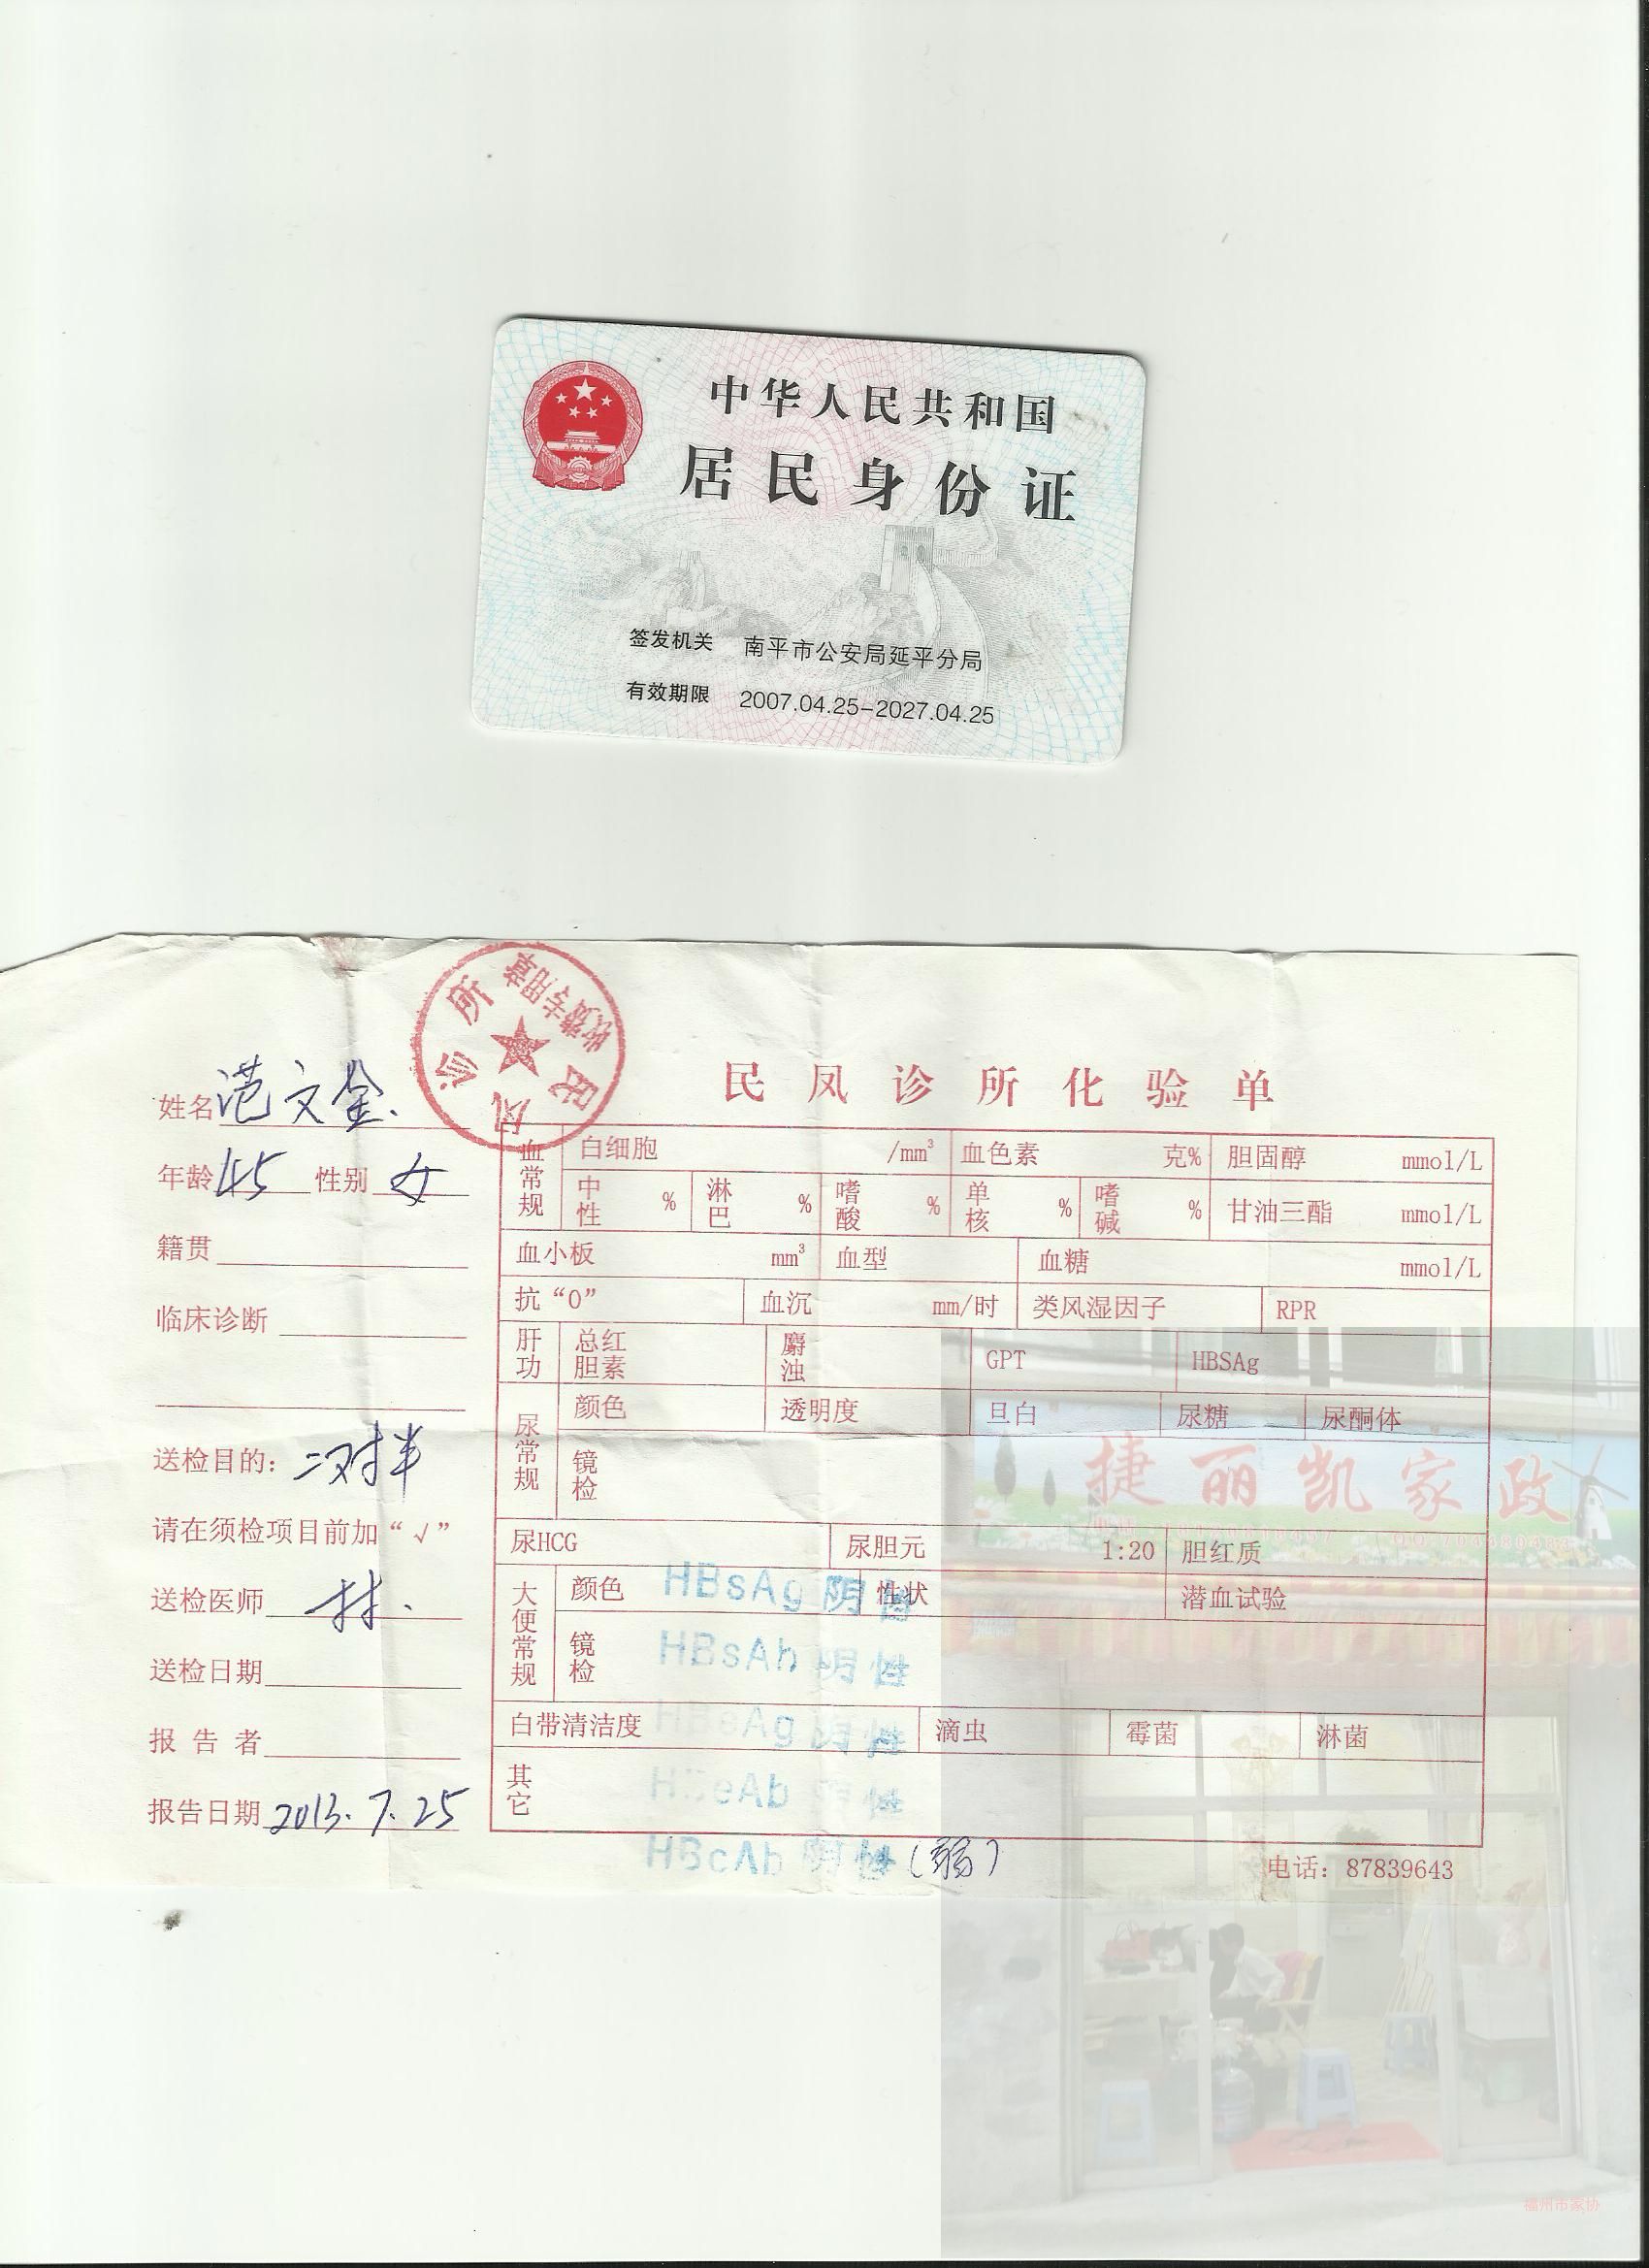 中华人民共和国
居民身份证
签发机关 南平市公安局延平分局
有效期限 2007.04.25-2027.04.25
民凤诊所
收费专用章
民凤诊所化验单
姓名 范文金
年龄 45 性别 女
籍贯
临床诊断
送检目的: 二对半
请在须检项目前加“√”
送检医师 林
送检日期
报告者
报告日期 2013.7.25
血常规 白细胞 /mm³ 血色素 克% 胆固醇 mmol/L
中性 % 淋巴 % 嗜酸 % 单核 % 嗜碱 % 甘油三酯 mmol/L
血小板 mm³ 血型 血糖 mmol/L
抗“O” 血沉 mm/时 类风湿因子 RPR
肝功 总红胆素 麝浊 GPT HBSAg
尿常规 颜色 透明度 旦白 尿糖 尿酮体
镜检
尿HCG 尿胆元 1:20 胆红质
大便常规 颜色 性状 潜血试验
镜检
白带清洁度 滴虫 霉菌 淋菌
其它
HBsAg 阴性
HBsAb 阴性
HBeAg 阴性
HBeAb 阴性
HBcAb 阴性(弱)
电话: 87839643
捷丽凯家政
福州市家协